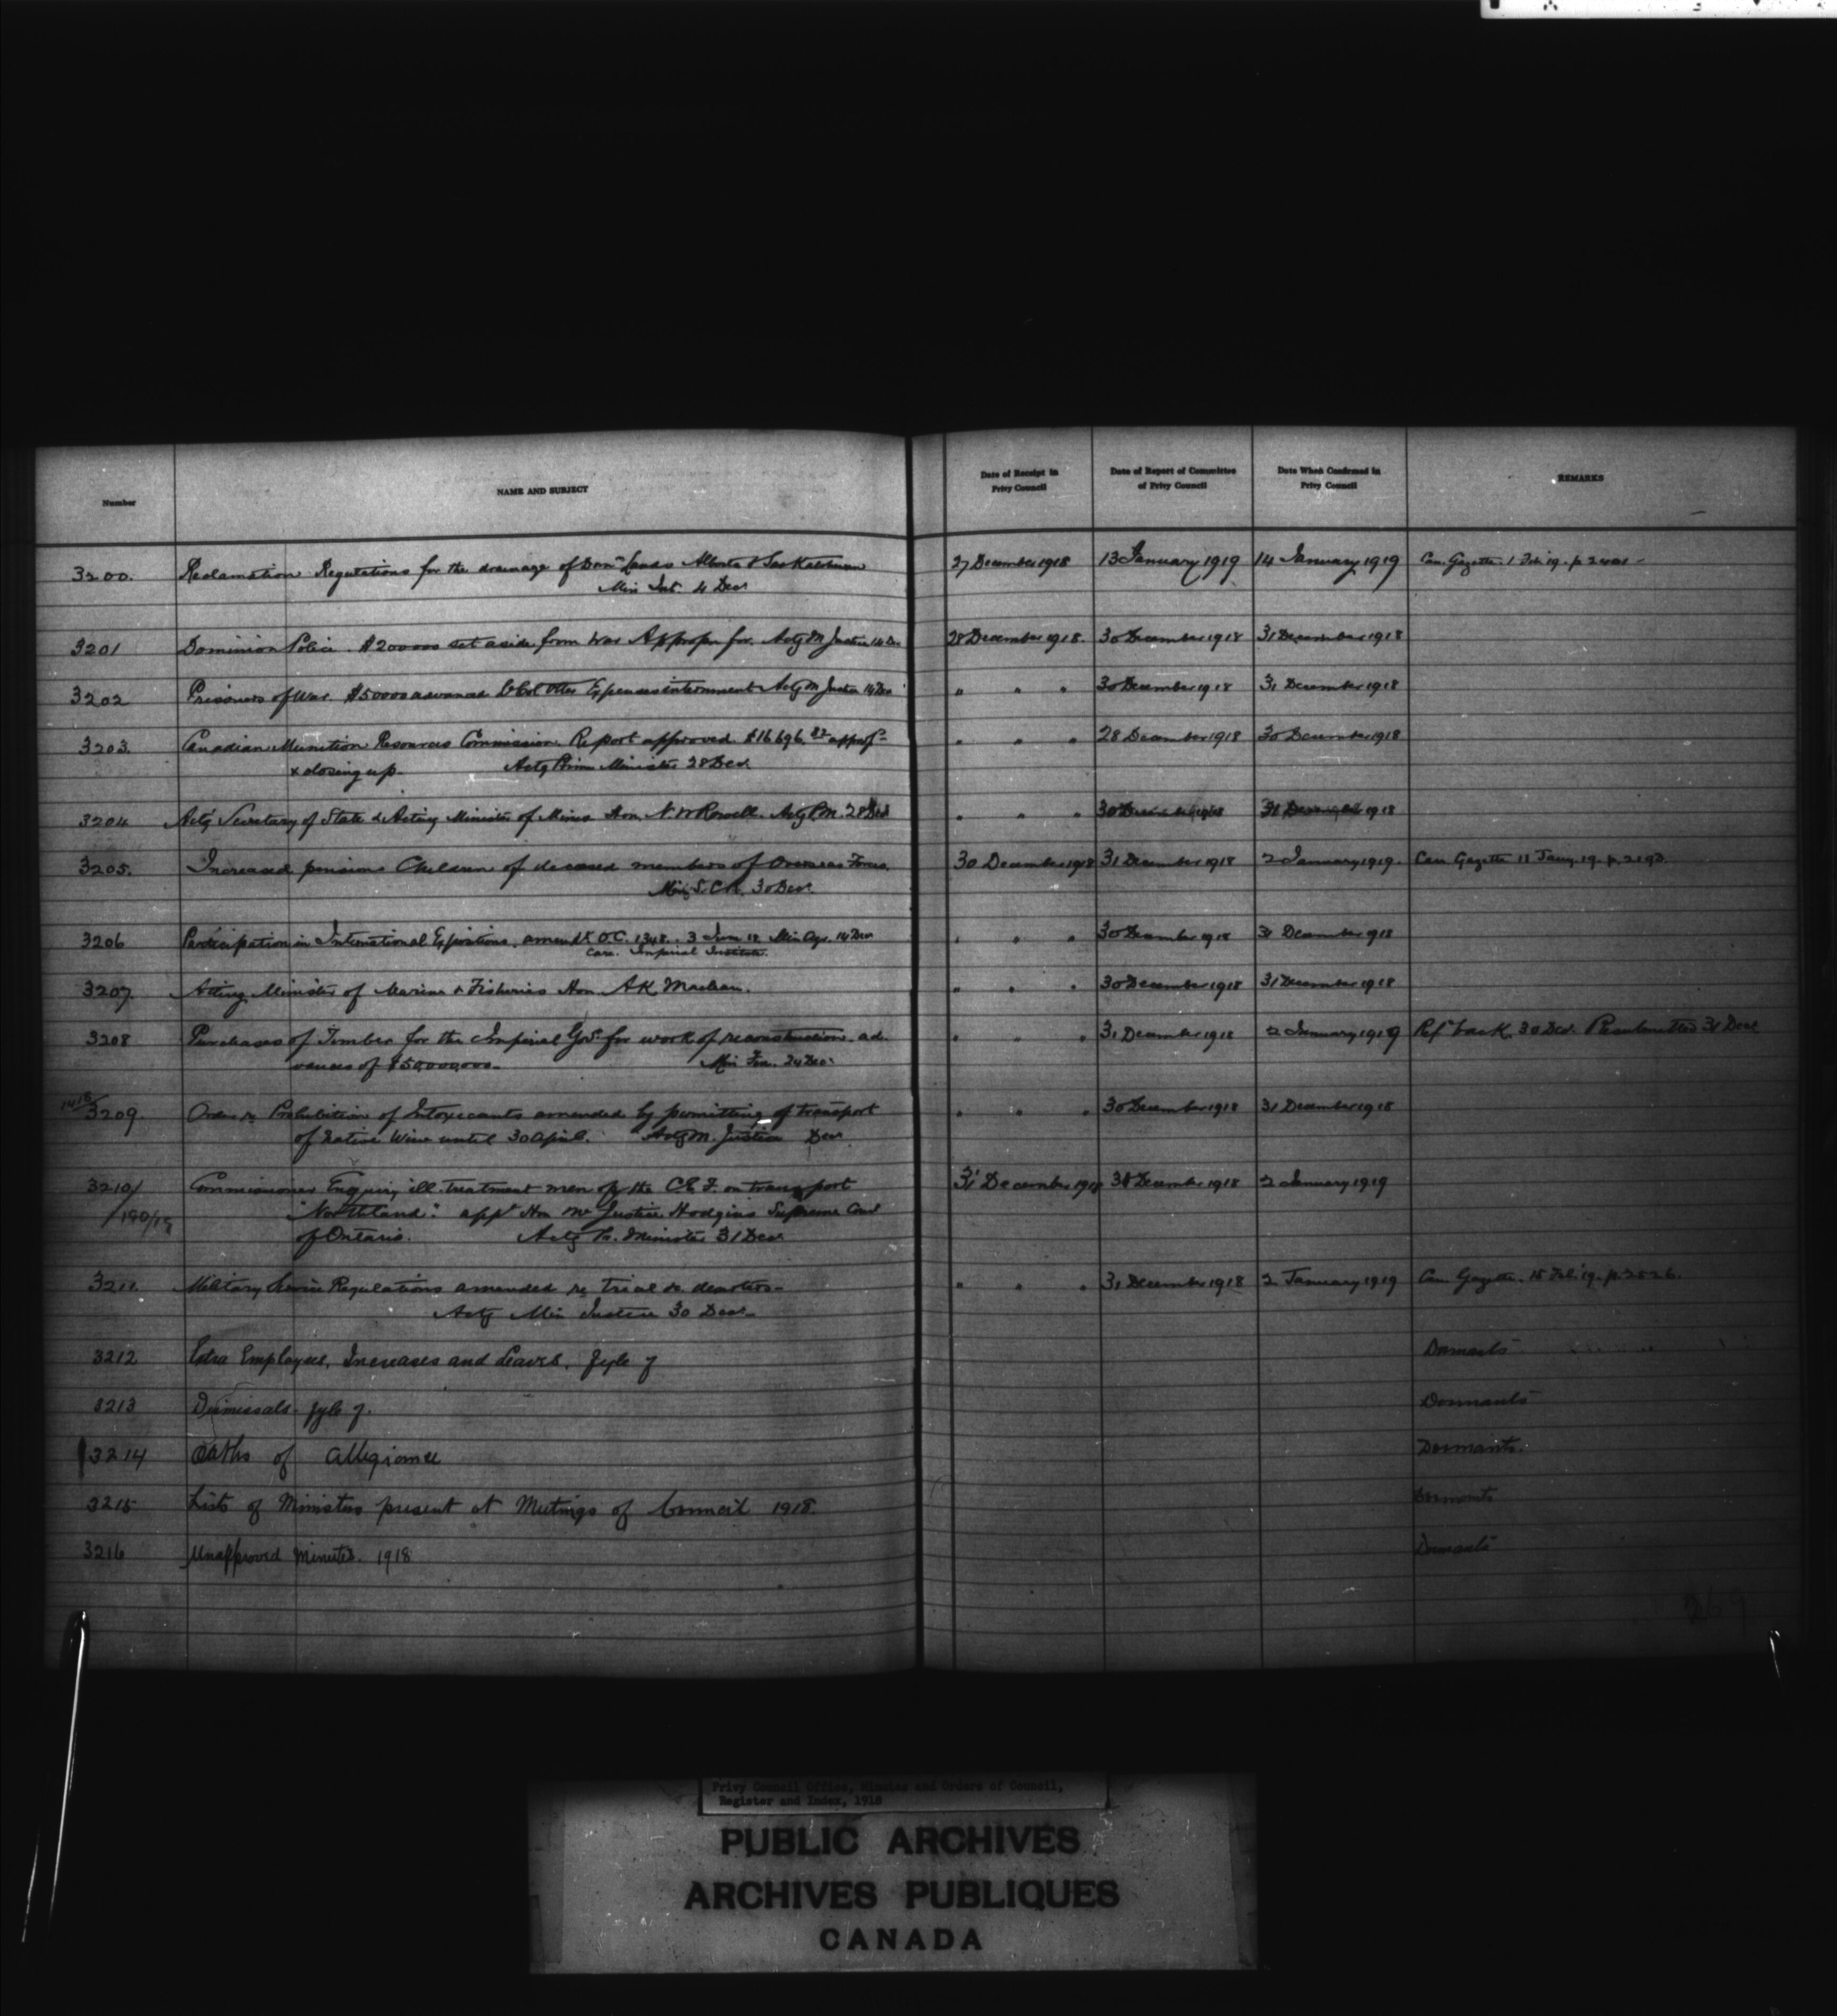 Number NAME AND SUBJECT Date of Receipt in Privy Council Date of Report of Committee of Privy Council Date When Confirmed in Privy Council REMARKS
3200. Reclamation Regulations for the drainage of Domn Lands Alberta & Saskatchewan 27 December 1918 13 January 1919 14 January 1919 Can. Gazette. 1 Feb 19. p.
Min Int. 4 Dec
3201 Dominion Police. $200000 set aside from War Appropn for. Actg M Justice 14 Dec 28 December 1918. 30 December 1918 31 December 1918
3202 Prisoners of War. $50000 advanced Other Expenses internment Actg M Justice 14 Dec " " " 30 December 1918 31 December 1918
3203. Canadian Munition Resources Commission. Report approved. $16696. " " " 28 December 1918 30 December 1918
& closing up. Actg Prime Minister 28 Dec.
3204 Actg Secretary of State & Acting Minister of Mines Hon. N W Rowell. Actg P.M. 28 Dec " " " 30 December 1918 31 December 1918
3205. Increased pensions Children of deceased members of Overseas Forces. 30 December 1918 31 December 1918 2 January 1919. Can Gazette 11 Jany. 19. p.
Min S.C.R. 30 Dec.
3206 Participation in International Expositions. amendt O.C. 1348. 3 June 18 Min Agr. 14 Dec " " " 30 December 1918 31 December 1918
Care. Imperial Institute.
3207. Acting Minister of Marine & Fisheries Hon. A K Maclean. " " " 30 December 1918 31 December 1918
3208 Purchases of Timber for the Imperial Govt for work of reconstruction. ad- " " " 31 December 1918 2 January 1919 Refd back. 30 Dec. Resubmitted 31 Dec
vances of $50,000,000. Min Fin. 24 Dec.
3209. Order re Prohibition of Intoxicants amended by permitting of transport " " " 30 December 1918 31 December 1918
of native Wine until 30 April. Actg M. Justice Dec.
3210/ Commissioner Enquiry ill-treatment men of the C.E.F. on transport 31 December 1918 31 December 1918 2 January 1919
/190/19 "Northland". appt Hon Mr Justice Hodgins Supreme Court
of Ontario. Actg Pr. Minister 31 Dec
3211. Military Service Regulations amended re trial 31 December 1918 2 January 1919 Can Gazette. 15 Feb. 19. p. 2526.
Actg Min Justice 30 Dec.
3212 Extra Employees, Increases and Leaves. Dormants
3213 Dismissals. Dormants
3214 Oaths of Allegiance Dormants.
3215 Lists of Ministers present at Meetings of Council 1918. Dormants
3216 Unapproved Minutes. 1918 Dormants
269
Privy Council Office, Minutes and Orders of Council,
Register and Index, 1918
PUBLIC ARCHIVES
ARCHIVES PUBLIQUES
CANADA